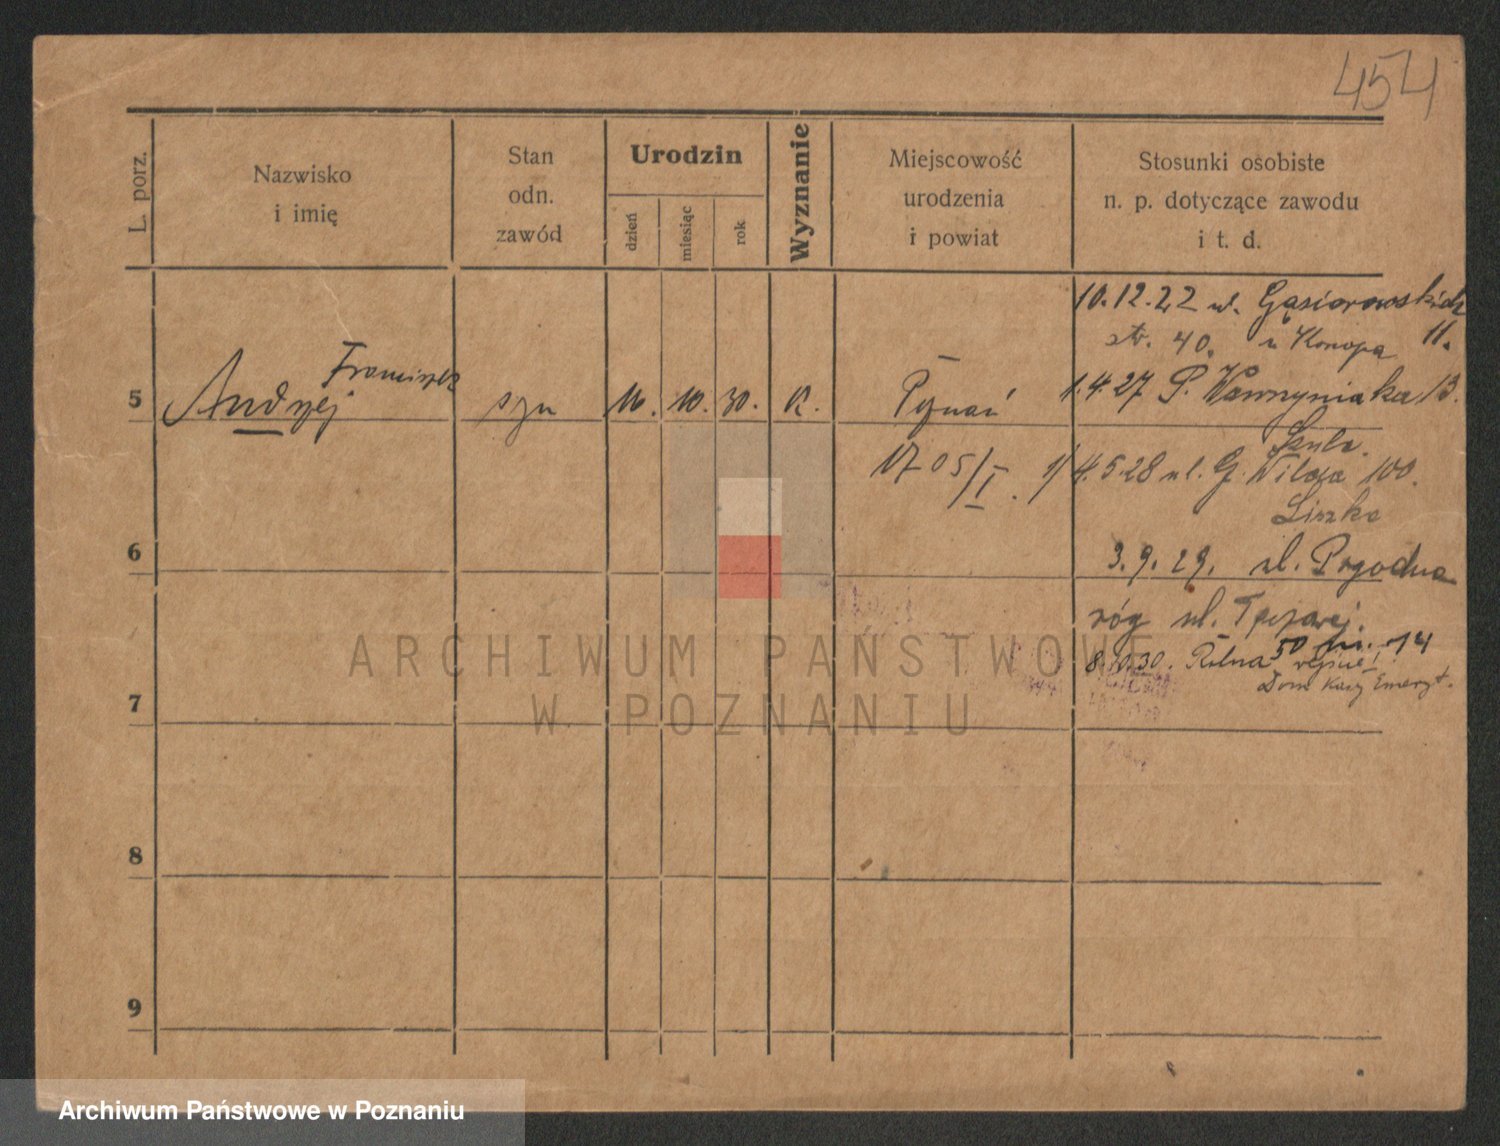 454
L. porz.
Nazwisko
i imię
Stan
odn.
zawód
Urodzin
dzień
miesiąc
rok
Wyznanie
Miejscowość
urodzenia
i powiat
Stosunki osobiste
n. p. dotyczące zawodu
i t. d.
10.12.22 ul. Gąsiorowskich
str. 40. u Konopa 11.
5
Andrzej Franciszek
syn
16. 10. 30. R.
Poznań
1.4.27 P. Wawrzyniaka 13.
Szulc.
17 05/I. 1/
4.5.28 ul. G. Wilda 100.
Liszka
6
3.9.29. ul. Pogodna
róg ul.
8.10.30. Rolna 50 m. 14
Dom Kasy Emeryt.
7
8
9
ARCHIWUM PAŃSTWOWE
W POZNANIU
Archiwum Państwowe w Poznaniu